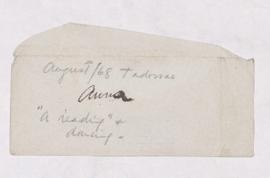 August/68 Tadossac
Anna
"a reading" &
dancing.